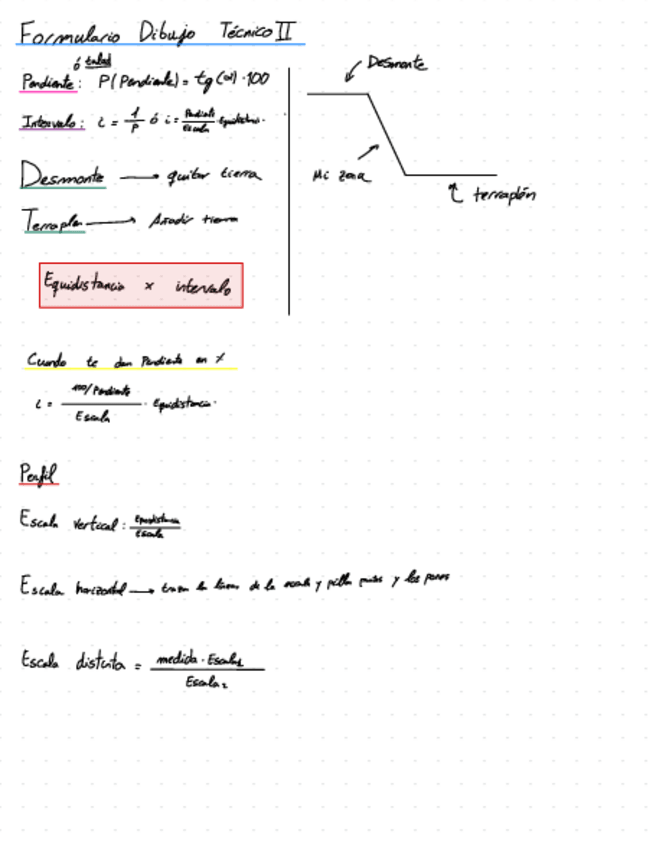 Formulario Dibujo Técnico II
ó talud
Pendiente: P(Pendiente) = tg(α)·100
Intervalo: i = 1/P ó i = Pendiente/Escala · Equidistancia.
Desmonte → quitar tierra
Terraplen → Añadir tierra
Equidistancia x intervalo
Desmonte
Mi zona
terraplén
Cuando te dan Pendiente en %
i = 100/Pendiente / Escala · Equidistancia.
Perfil
Escala vertical: Equidistancia/Escala
Escala horizontal → la línea de la y pilla y los pones
Escala distinta = medida · Escala1 / Escala2